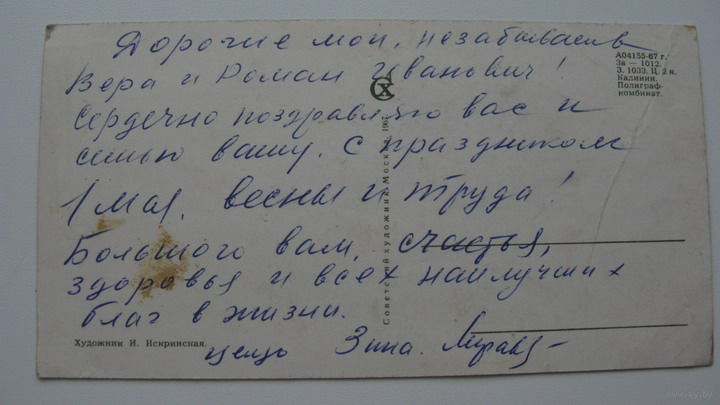 Дорогие мои, незабываемые
Вера и Роман Иванович!
Сердечно поздравляю вас и
семью вашу. С праздником
1 Мая, весны и труда!
Большого вам, счастья,
здоровья и всех наилучших
благ в жизни.
целую Зина.
А04155-67 г.
За — 1012.
Э. 1033. Ц. 2 к.
Калинин.
Полиграф-
комбинат.
Советский художник. Москва. 1967
Художник И. Искринская.